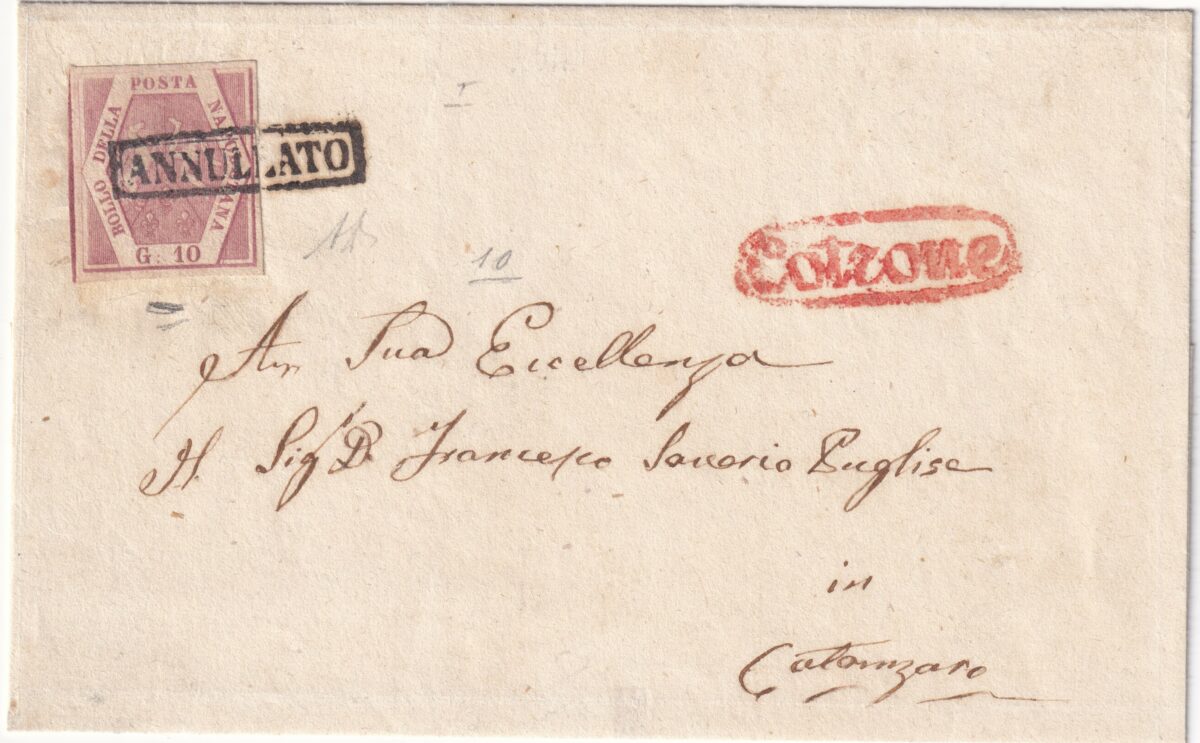 BOLLO DELLA POSTA NAPOLETANA
G. 10
ANNULLATO
I
10
Cotrone
A Sua Eccellenza
Il Sig.r D. Francesco Saverio Puglise
in
Catanzaro